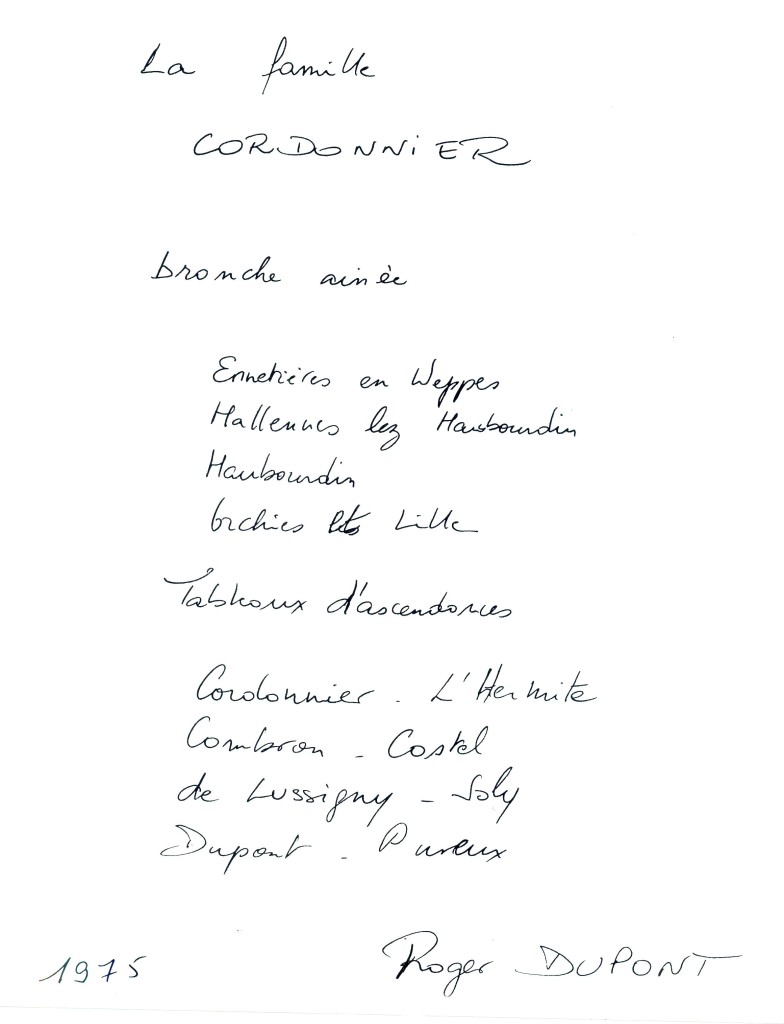 La famille
CORDONNIER
branche ainée
Ennetières en Weppes
Hallennes lez Haubourdin
Haubourdin
Orchies Lille
Tableaux d'ascendances
Cordonnier - L'Hermite
Combron - Costel
de Lussigny - Joly
Dupont - Pureux
1975
Roger DUPONT